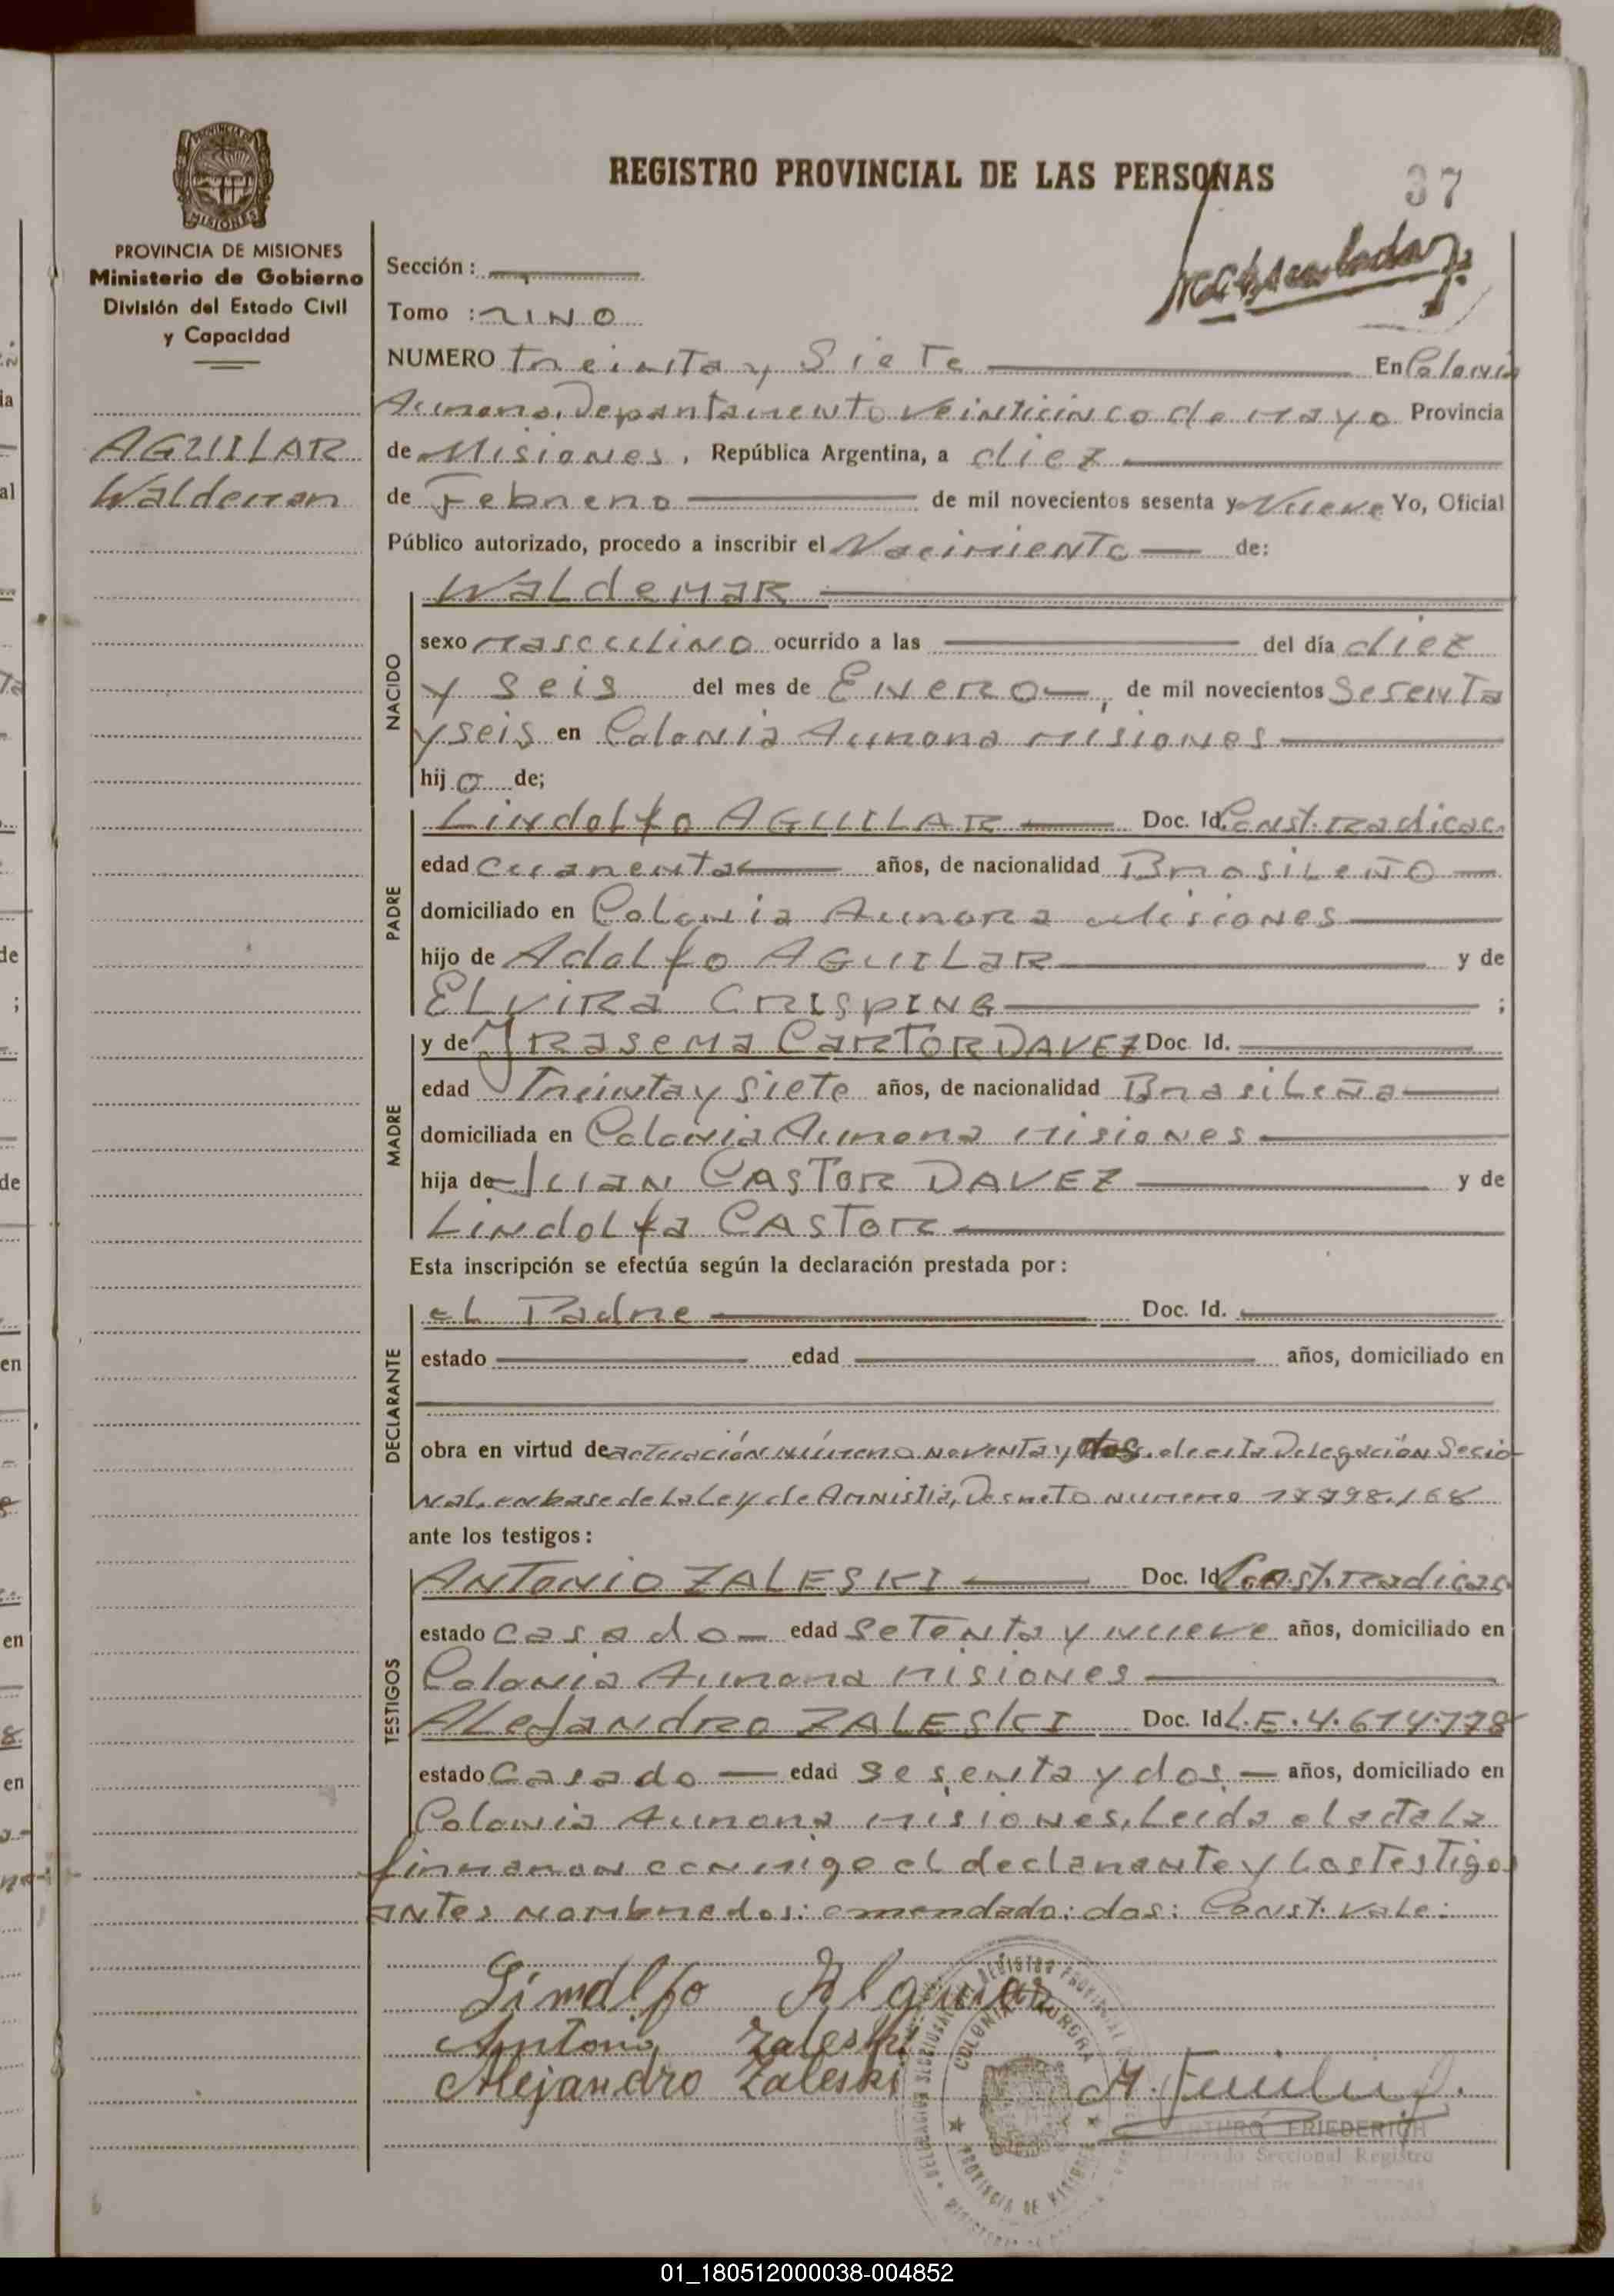 REGISTRO PROVINCIAL DE LAS PERSONAS
37
PROVINCIA DE MISIONES
Ministerio de Gobierno
División del Estado Civil
y Capacidad
AGUILAR
Waldemar
Sección :
Tomo : UNO
NUMERO treinta y Siete En Colonia
Aurora, Departamento Veinticinco de mayo Provincia
de Misiones, República Argentina, a diez
de Febrero de mil novecientos sesenta y Nueve Yo, Oficial
Público autorizado, procedo a inscribir el Nacimiento de:
NACIDO
WALdeMAR
sexo masculino ocurrido a las del día diez
y seis del mes de Enero, de mil novecientos Sesenta
y seis en Colonia Aurora misiones
hijo de;
PADRE
Lindolfo AGUILAR Doc. Id. Const. radicac.
edad cuarenta años, de nacionalidad Brasileño
domiciliado en Colonia Aurora Misiones
hijo de Adolfo AGUILAR y de
ELVIRA CRISPING ;
MADRE
y de JRASEMA CARTOR DAVEZ Doc. Id.
edad Treinta y Siete años, de nacionalidad Brasileña
domiciliada en Colonia Aurora Misiones
hija de JUAN CASTOR DAVEZ y de
LINDOLFA CASTOR
Esta inscripción se efectúa según la declaración prestada por :
DECLARANTE
eL Padre Doc. Id.
estado edad años, domiciliado en
obra en virtud de actuación número noventa y dos de esta Delegación Seccio-
nal, en base de la Ley de Amnistia, Decreto numero
ante los testigos :
TESTIGOS
ANTONIO ZALESKI Doc. Id. Const. radicac
estado Casado edad setenta y nueve años, domiciliado en
Colonia Aurora Misiones
ALeJANdRO ZALESKI Doc. Id. L.E.4.614.778
estado Casado edad sesenta y dos años, domiciliado en
Colonia Aurora misiones, Leida el acta La
firmaron conmigo el declarante y Los testigos
antes nombrados: enmendado: dos: Const. Vale:
Limdlfo Alguiar
Antonio Zaleski
Alejandro Zaleski
COLONIA AURORA
PROVINCIA DE MISIONES
ARTURO FRIEDERICH
Seccional Registro
01_180512000038-004852